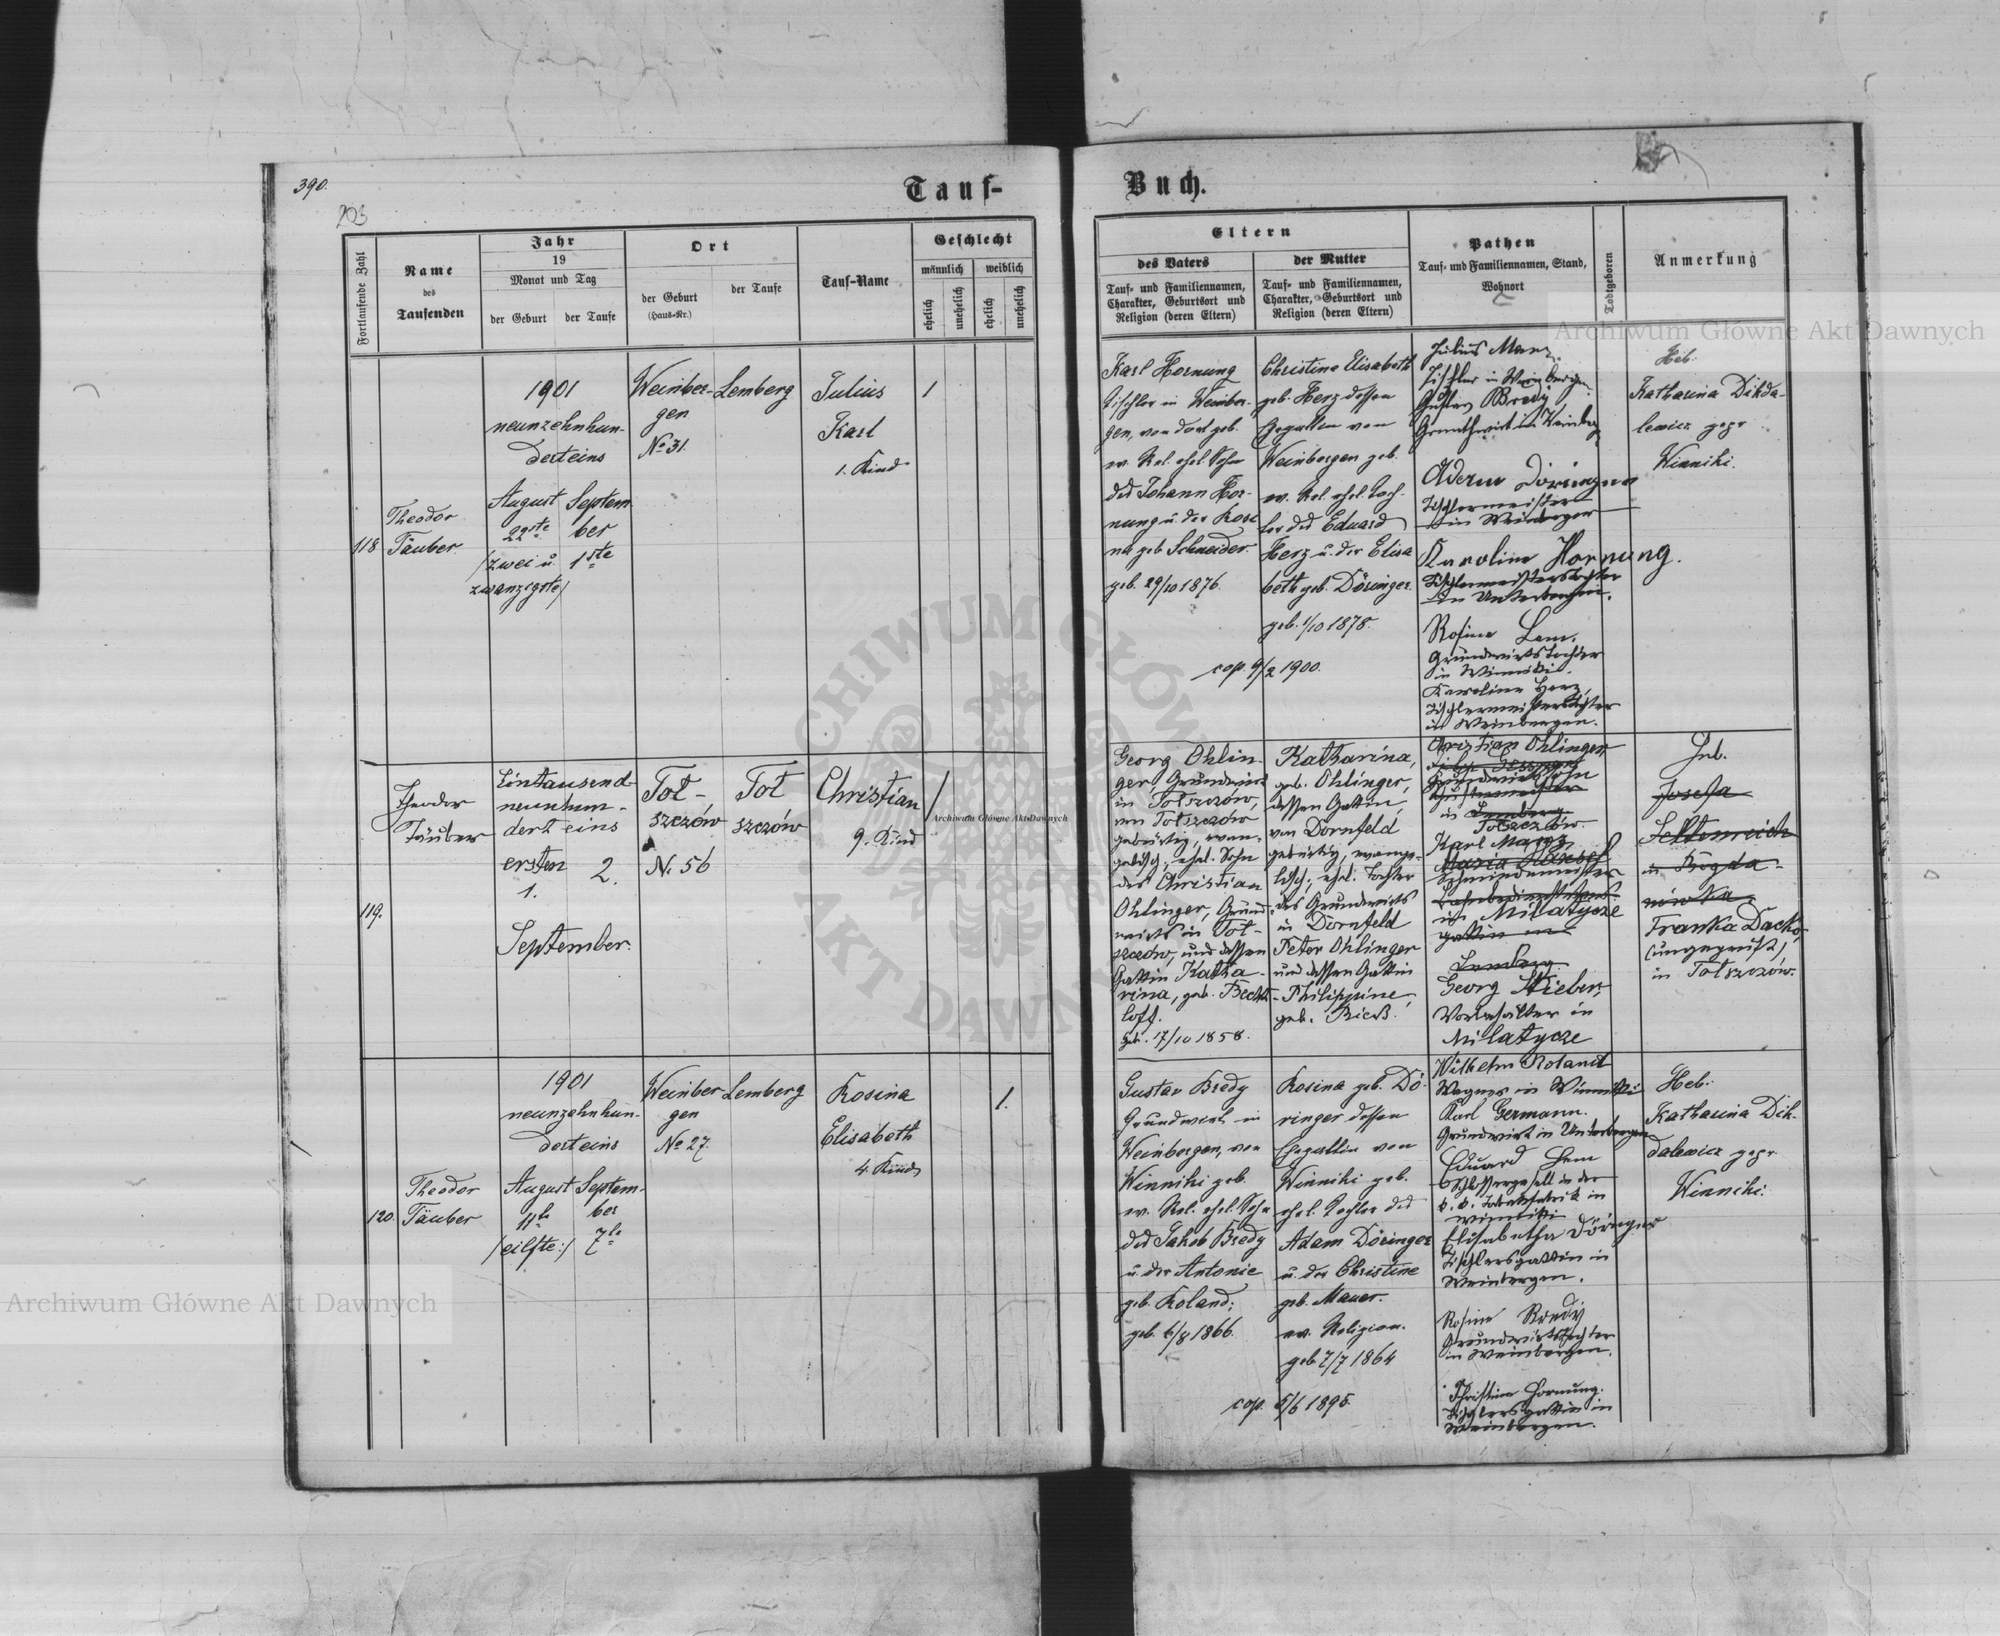 390.
203
Tauf-
Buch.
Fortlaufende Zahl
Name
des
Taufenden
Jahr
19
Monat und Tag
der Geburt
der Taufe
Ort
der Geburt
(Haus-Nr.)
der Taufe
Tauf-Name
Geschlecht
männlich
weiblich
ehelich
unehelich
ehelich
unehelich
Eltern
des Vaters
Tauf- und Familiennamen,
Charakter, Geburtsort und
Religion (deren Eltern)
der Mutter
Tauf- und Familiennamen,
Charakter, Geburtsort und
Religion (deren Eltern)
Pathen
Tauf- und Familiennamen, Stand,
Wohnort
Todtgeboren
Anmerkung
118
Theodor
Täuber
1901
neunzehnhun-
derteins
August
22ste
/zwei u.
zwanzigste/
Septem
ber
1ste
Weinber-
gen
No 31.
Lemberg
Julius
Karl
1. Kind
1
Karl Hornung
Tischler in Weinber-
gen, von dort geb.
ev. Rel. ehel. Sohn
des Johann Hor-
nung u. der Rosi
na geb. Schneider.
geb. 29/10 1876.
Christine Elisabeth
geb. Herz dessen
Ehegattin von
Weinbergen geb.
ev. Rel. ehel. Toch-
ter des Eduard
Herz u. der Elisa
beth geb. Döringer.
geb. 1/10 1878.
cop. 9/2 1900.
Julius Manz.
Tischler in Weinbergen.
Gustav Bredy
Grundwirt in Weinberg
Adam Döringer
Tischlermeister
in Weinbergen
Karoline Hornung.
Tischlermeisterstochter
in Unterbergen.
Rosina Lem.
Grundwirtstochter
in Winniki.
Karoline Herz,
Tischlermeisterstochter
in Weinbergen.
Heb.
Katharina Dikda-
lewicz gepr
Winniki.
119.
Theodor
Täuber
Eintausend
neunhun-
dert eins
ersten
1.
2.
September.
Tot-
szczów
N. 56
Tot
szczów
Christian
9. Kind
Georg Ohlin-
ger, Grundwirt
in Totszczów,
von Totszczów
gebürtig, evan-
gelisch, ehel. Sohn
des Christian
Ohlinger, Grund-
wirts in Tot-
szczów, und dessen
Gattin Katha-
rina, geb. Becht-
loff.
geb. 17/10 1858.
Katharina,
geb. Ohlinger,
dessen Gattin,
von Dornfeld
gebürtig, evange-
lisch; ehel. Tochter
des Grundwirts
in Dornfeld
Peter Ohlinger
und dessen Gattin
Philippine,
geb. Rieß.
Christian Ohlinger
Grundwirtssohn
in Lemberg
Totszczów.
Karl Manz,
Schmiedemeister
in Milatycze
gattin in
Lemberg
Georg Stieber,
Milatycze
Heb.
Josefa
Franka Dacko,
(ungeprüft)
in Totszczów.
120.
Theodor
Täuber
1901
neunzehnhun-
derteins
August
11te
/eilfte:/
Septem-
ber
7te
Weinber
gen
No 27.
Lemberg
Rosina
Elisabeth
4. Kind
1.
Gustav Bredy
Grundwirt in
Weinbergen, von
Winniki geb.
ev. Rel. ehel. Sohn
des Jakob Bredy
u. der Antonie
geb. Roland;
geb. 6/8 1866.
Rosina geb. Dö-
ringer dessen
Ehegattin von
Winniki geb.
ehel. Tochter des
Adam Döringer
u. der Christine
geb. Mauer.
ev. Religion.
geb 7/7 1864
cop. 5/6 1895.
Wilhelm Roland
Wagner in Winniki
Karl Germann.
Grundwirt in Unterbergen
Eduard Lem
Schlossergesell in der
k. k. Tabakfabrik in
Winniki
Elisabetha Döringer
Tischlersgattin in
Weinbergen.
Rosina Bredy
Grundwirtstochter
in Weinbergen.
Christine Hornung.
Tischlersgattin in
Weinbergen.
Heb.
Katharina Dik-
dalewicz gepr.
Winniki.
Archiwum Główne Akt Dawnych
Archiwum Główne Akt Dawnych
Archiwum Główne Akt Dawnych
ARCHIWUM GŁÓWNE
AKT DAWNYCH